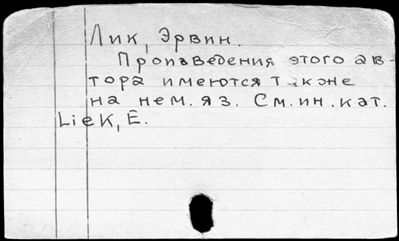 Лик, Эрвин.
Произведения этого ав-
тора имеются также
на нем. яз. См. ин. кат.
Liek, E.